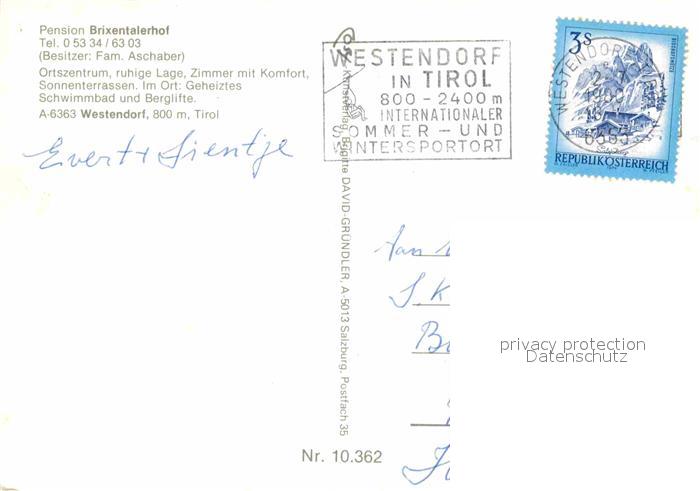 Pension Brixentalerhof
Tel. 0 53 34 / 63 03
(Besitzer: Fam. Aschaber)
Ortszentrum, ruhige Lage, Zimmer mit Komfort,
Sonnenterrassen. Im Ort: Geheiztes
Schwimmbad und Berglifte.
A-6363 Westendorf, 800 m, Tirol
Evert + Sientje
WESTENDORF
IN TIROL
800 - 2400 m
INTERNATIONALER
SOMMER - UND
WINTERSPORTORT
3S
WESTENDORF
6363
REPUBLIK ÖSTERREICH
Kunstverlag, Brigitte DAVID-GRÜNDLER, A-5013 Salzburg, Postfach 35
Aan
S. K
privacy protection
Datenschutz
Nr. 10.362